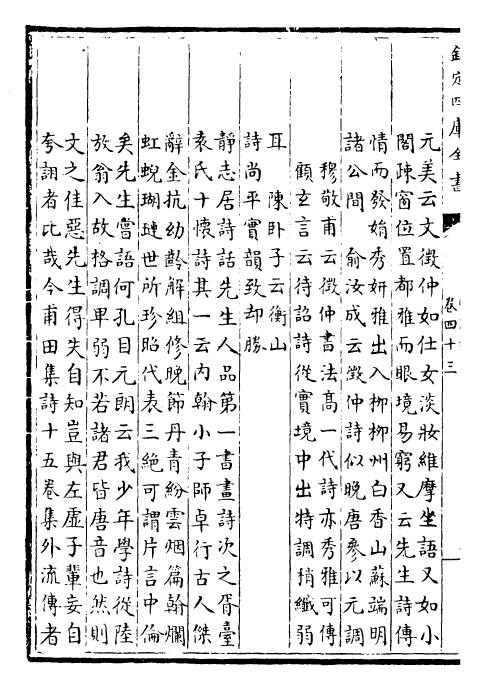 欽定四庫全書
卷四十三
元美云文徵仲如仕女淡妝維摩坐語又如小
閣疎窗位置都雅而眼境易窮又云先生詩傳
情而發娟秀妍雅出入柳柳州白香山蘇端明
諸公間　俞汝成云徵仲詩似晚唐參以元調
穆敬甫云徵仲書法高一代詩亦秀雅可傳
顧玄言云待詔詩從實境中出特調稍纖弱
耳　陳卧子云衡山
詩尚平實韻致却勝
靜志居詩話先生人品第一書畫詩次之胥臺
袁氏十懷詩其一云内翰小子師卓行古人傑
辭金抗幼齡解組修晚節丹青紛雲烟篇翰爛
虹蜺瑚璉世所珍昭代表三絶可謂片言中倫
矣先生嘗語何孔目元朗云我少年學詩從陸
放翁入故格調卑弱不若諸君皆唐音也然則
文之佳惡先生得失自知豈與左虛子輩妄自
夸詡者比哉今甫田集詩十五卷集外流傳者